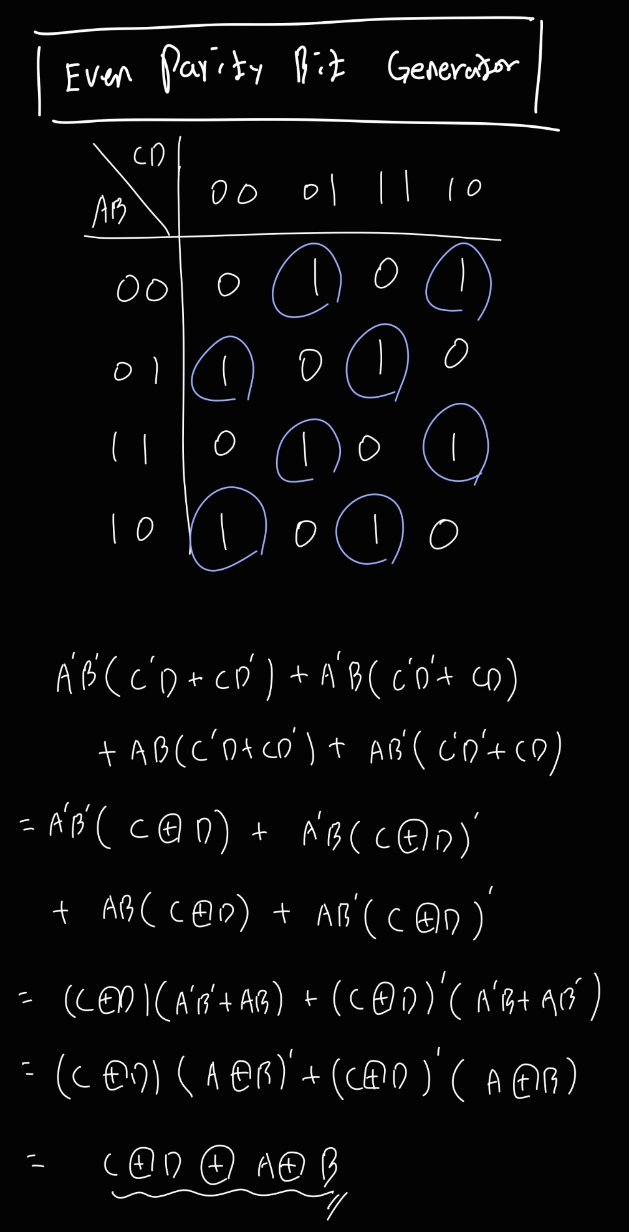 Even Parity Bit Generator
CD
AB
00 01 11 10
00 0 1 0 1
01 1 0 1 0
11 0 1 0 1
10 1 0 1 0
A'B'(C'D+CD') + A'B(C'D'+CD)
+ AB(C'D+CD') + AB'(C'D'+CD)
= A'B'(C⊕D) + A'B(C⊕D)'
+ AB(C⊕D) + AB'(C⊕D)'
= (C⊕D)(A'B'+AB) + (C⊕D)'(A'B+AB')
= (C⊕D)(A⊕B)' + (C⊕D)'(A⊕B)
= C⊕D⊕A⊕B